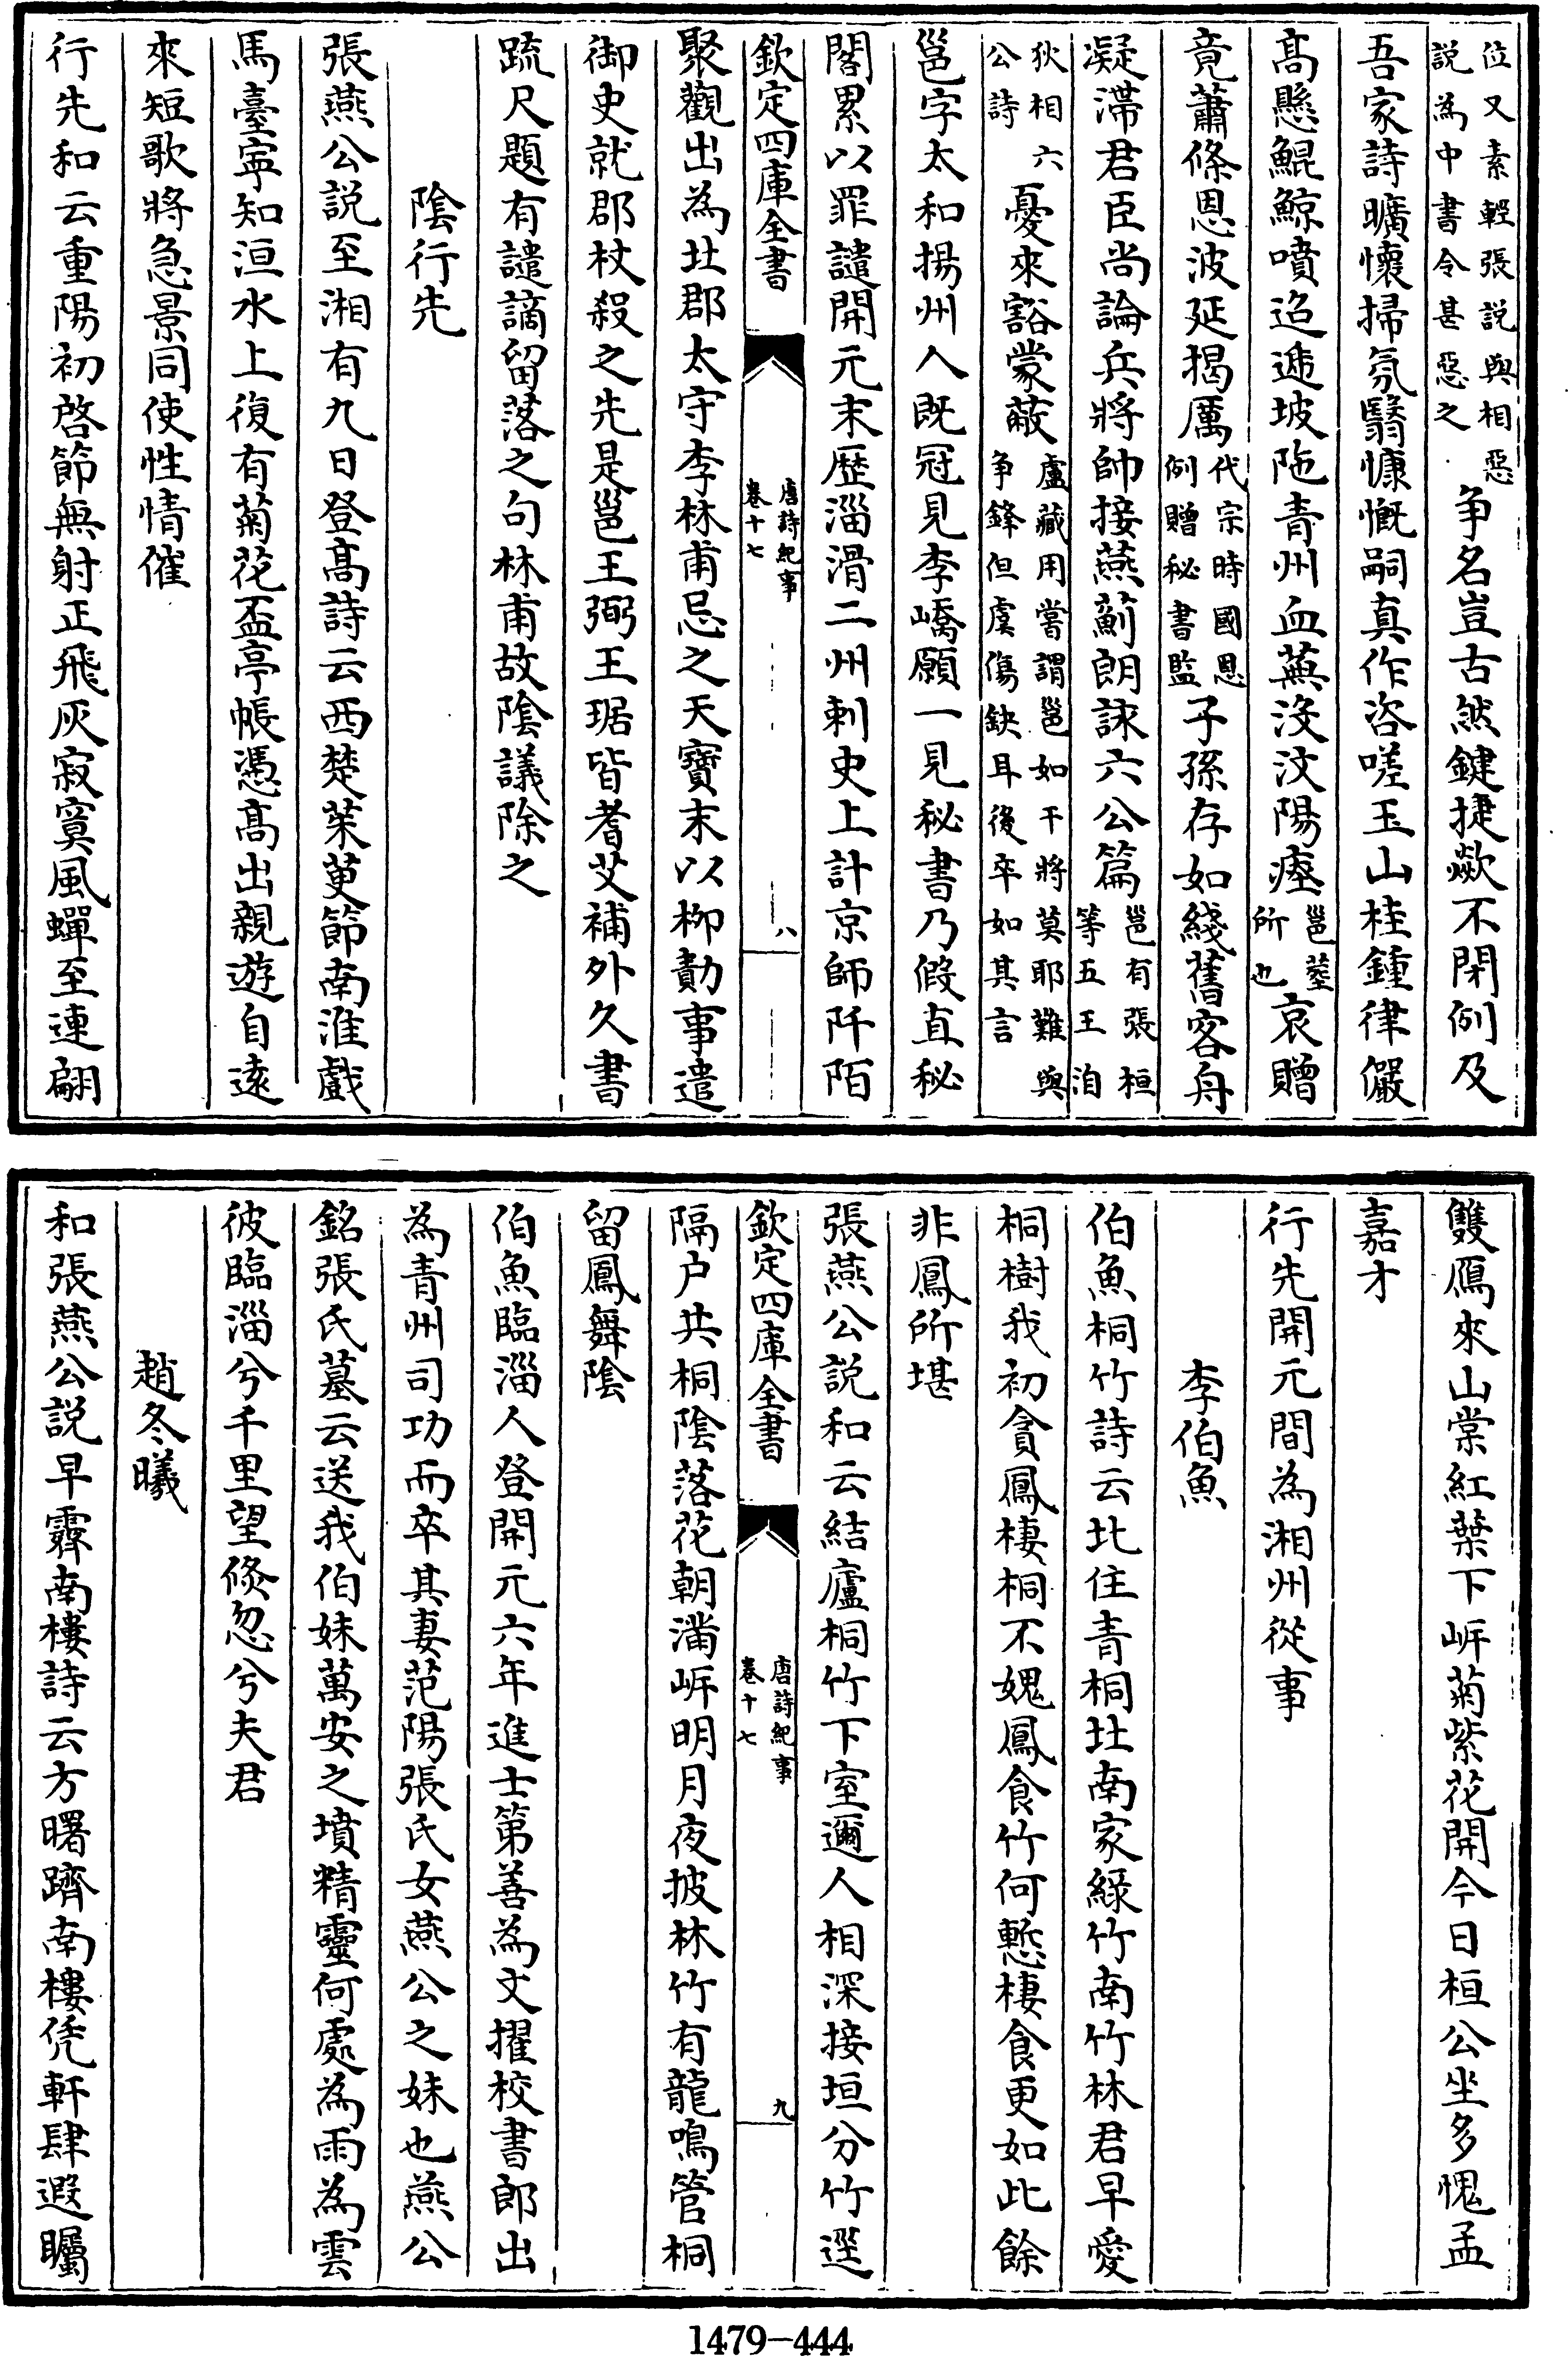 位又素輕張説與相惡説為中書令甚惡之争名豈古然鍵捷歘不閉例及
吾家詩曠懷掃氛翳慷慨嗣真作咨嗟玉山桂鍾律儼
髙懸鯤鯨噴迢遞坡陁青州血蕪沒汶陽瘞邕塟所也哀贈
竟蕭條恩波延揭厲代宗時國恩例贈秘書監子孫存如綫舊客舟
凝滯君臣尚論兵將帥接燕薊朗詠六公篇邕有張桓等五王洎
狄相六公詩憂來豁蒙蔽盧藏用嘗謂邕如干將莫耶難與争鋒但虞傷缺耳後卒如其言
邕字太和揚州人既冠見李嶠願一見秘書乃假直秘
閣累以罪譴開元末歴淄滑二州刺史上計京師阡陌
欽定四庫全書
唐詩紀事
卷十七
八
聚觀出為北郡太守李林甫忌之天寶末以柳勣事遣
御史就郡杖殺之先是邕王弼王琚皆耆艾補外久書
疏尺題有譴謫留落之句林甫故陰議除之
陰行先
張燕公説至湘有九日登髙詩云西楚茱萸節南淮戲
馬臺寜知洹水上復有菊花盃亭帳憑髙出親遊自逺
來短歌將急景同使性情催
行先和云重陽初啓節無射正飛灰寂寞風蟬至連翩
雙鴈來山棠紅葉下岍菊紫花開今日桓公坐多愧孟
嘉才
行先開元間為湘州從事
李伯魚
伯魚桐竹詩云北住青桐北南家緑竹南竹林君早愛
桐樹我初貪鳳棲桐不媿鳳食竹何慙棲食更如此餘
非鳳所堪
張燕公説和云結廬桐竹下室邇人相深接垣分竹逕
欽定四庫全書
唐詩紀事
卷十七
九
隔户共桐陰落花朝滿岍明月夜披林竹有龍鳴管桐
留鳳舞陰
伯魚臨淄人登開元六年進士第善為文擢校書郎出
為青州司功而卒其妻范陽張氏女燕公之妹也燕公
銘張氏墓云送我伯妹萬安之墳精靈何處為雨為雲
彼臨淄兮千里望倐忽兮夫君
趙冬曦
和張燕公説早霽南樓詩云方曙躋南樓凭軒肆遐矚
1479-444